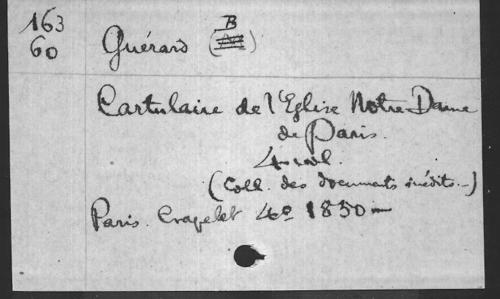 163
60
Guérard (B)
Cartulaire de l'Eglise Notre-Dame
de Paris.
4 vol.
(Coll. des documents inédits.-)
Paris. Crapelet 4º 1850-